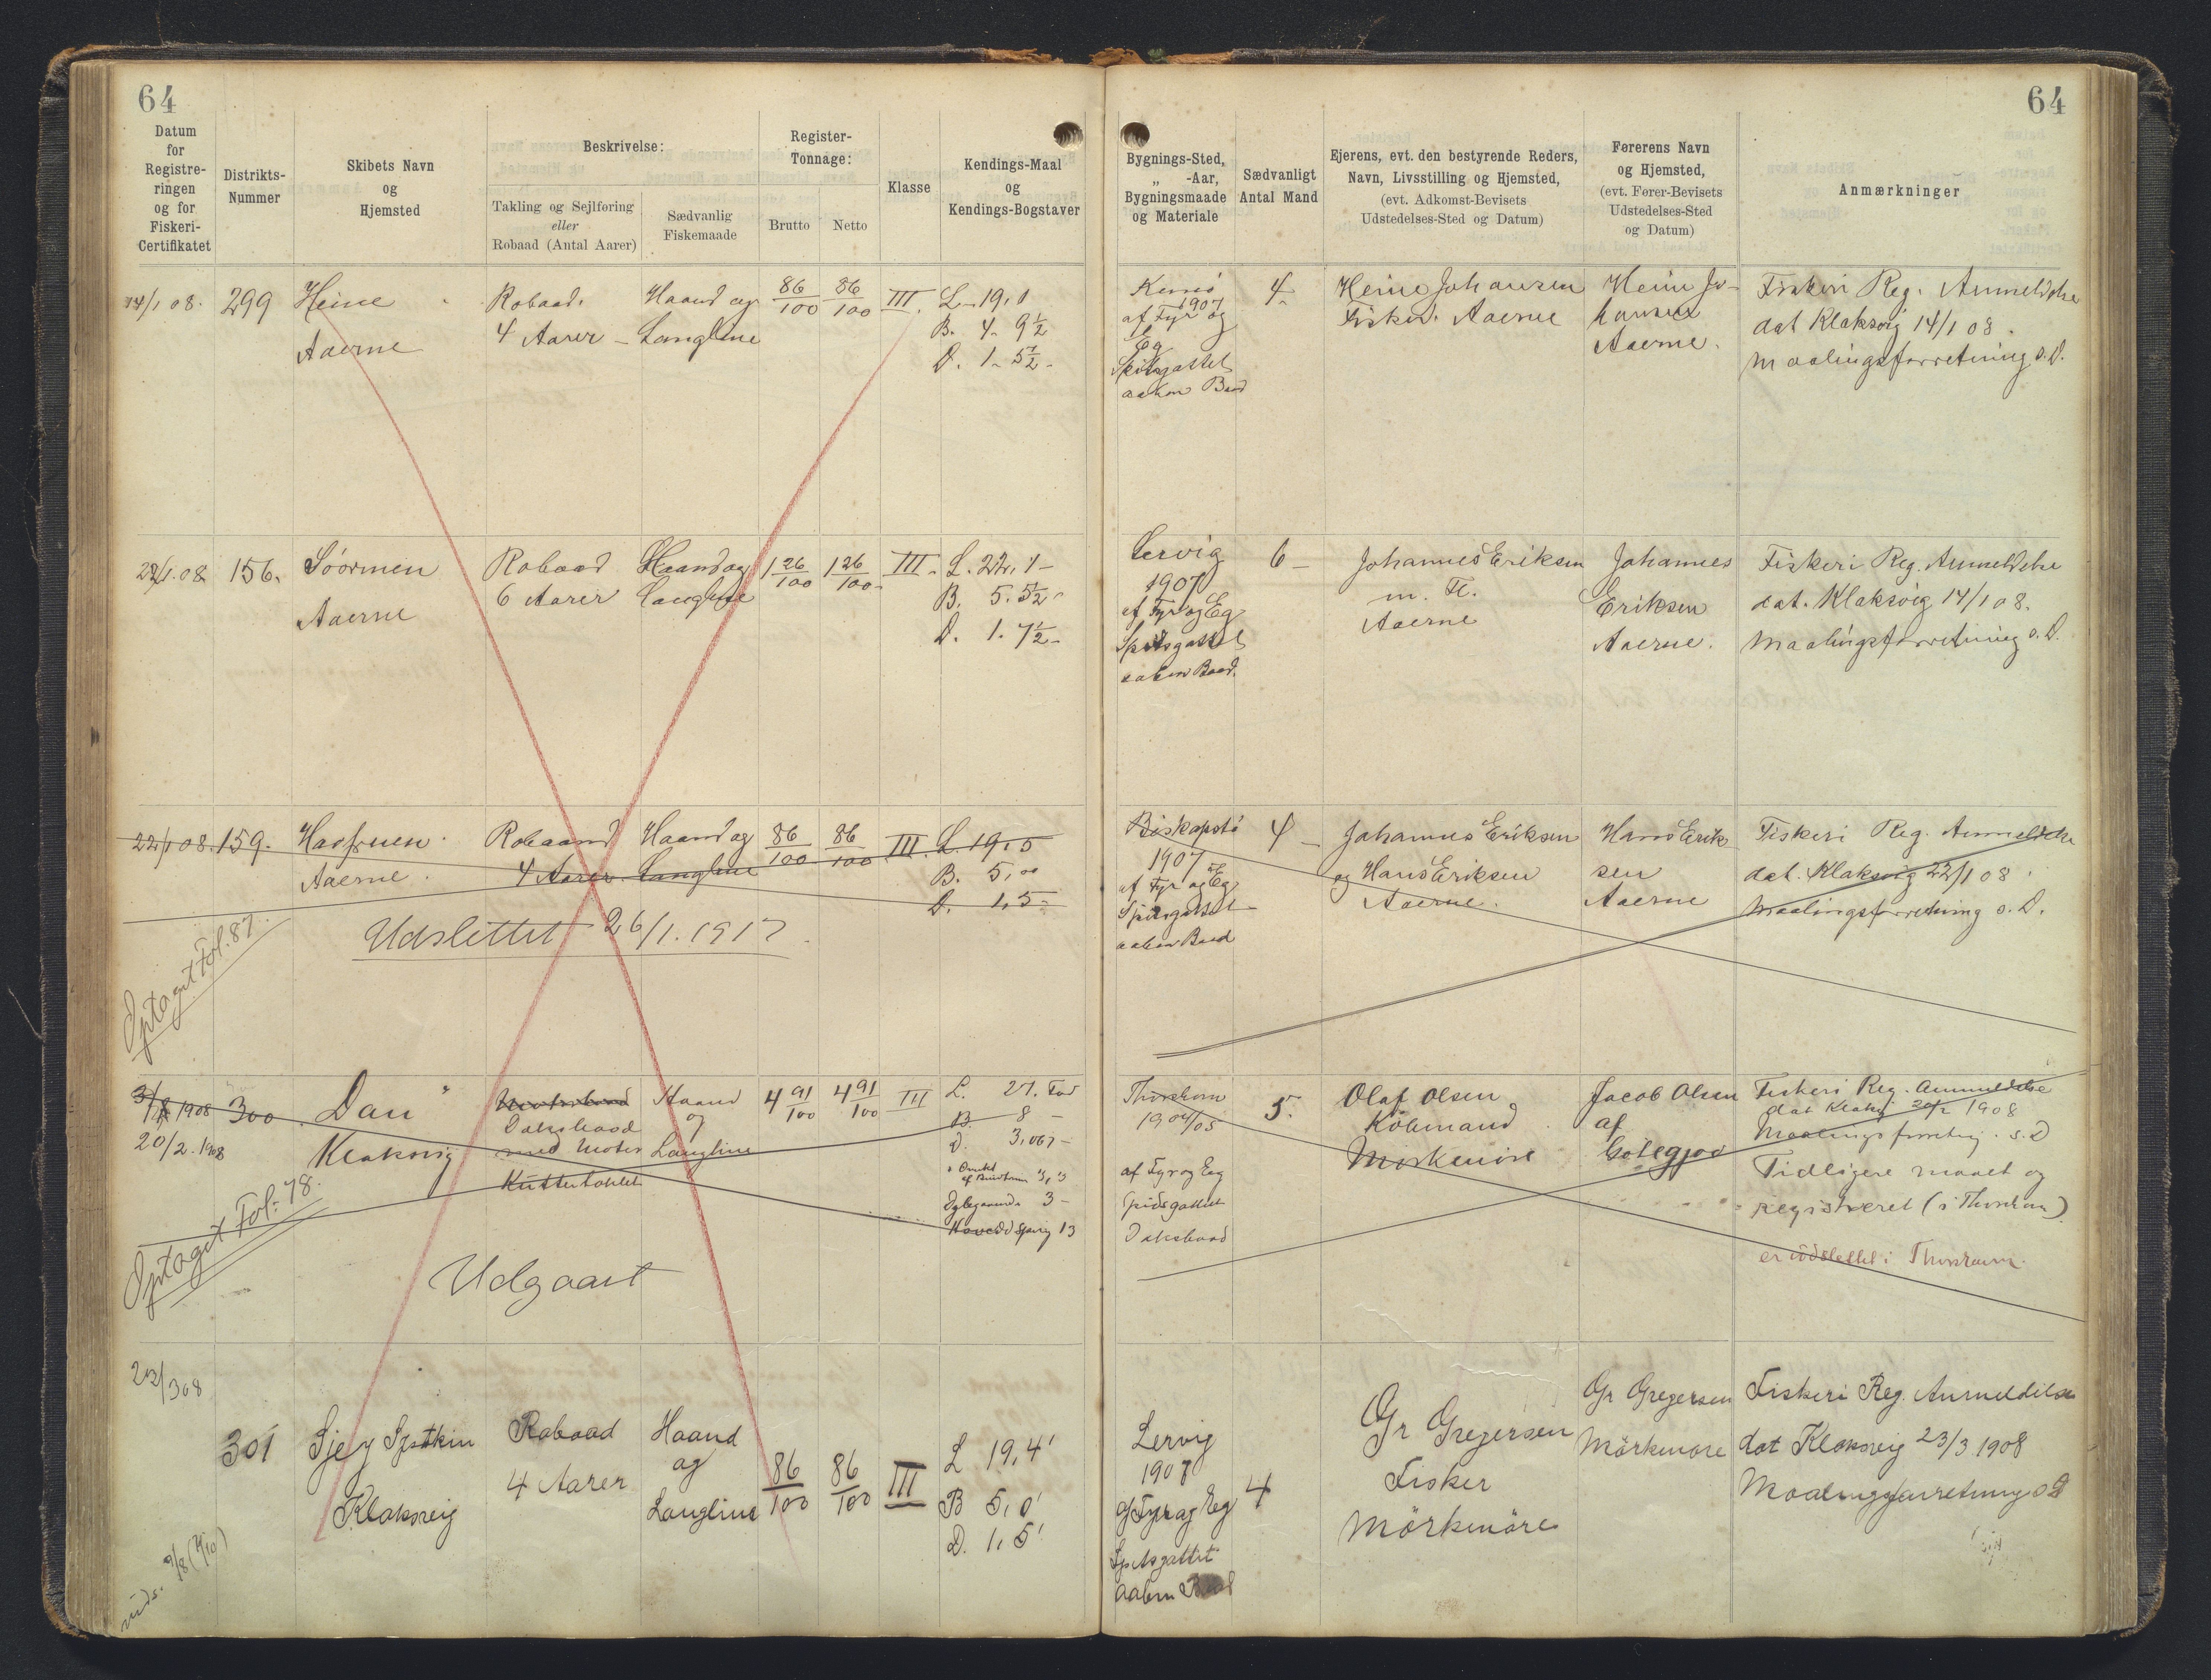 64
64
Datum
for
Registre-
ringen
og for
Fiskeri-
Certifikatet
Distrikts-
Nummer
Skibets Navn
og
Hjemsted
Beskrivelse:
Takling og Sejlføring
eller
Robaad (Antal Aarer)
Sædvanlig
Fiskemaade
Register-
Tonnage:
Brutto
Netto
Klasse
Kendings-Maal
og
Kendings-Bogstaver
Bygnings-Sted,
„ -Aar,
Bygningsmaade
og Materiale
Sædvanligt
Antal Mand
Ejerens, evt. den bestyrende Reders,
Navn, Livsstilling og Hjemsted,
(evt. Adkomst-Bevisets
Udstedelses-Sted og Datum)
Førerens Navn
og Hjemsted,
(evt. Fører-Bevisets
Udstedelses-Sted
og Datum)
Anmærkninger
14/1 08.
299
Heine
Aaerne
Robaad.
4 Aarer
Haand og
Langline
86/100
86/100
III.
L. 19,1
B. 4. 9½
D. 1. 5½
1907
af Fyr og
Eg
Spidsgattet
aaben Baad
4
Heine Johansen
Fisker. Aaerne
Heine Jo-
hansen
Aaerne.
Fiskeri Reg. Anmeldelse
dat Klaksvig 14/1 08.
Maalingsforretning s.D.
22/1.08
156.
Aaerne
Robaad
6 Aarer
Haand og
Langline
1 26/100
1 26/100
III.
L. 22, 1
B. 5. 5½
D. 1. 7½
Lervig
1907
af Fyr og Eg
Spidsgattet
aaben Baad.
6
Johannes Eriksen
m. Fl.
Aaerne
Johannes
Eriksen
Aaerne.
Fiskeri Reg. Anmeldelse
dat. Klaksvig 14/1 08.
Maalingsforretning s.D.
22/1 08.
159.
Havfruen
Aaerne.
Robaad
4 Aarer
Haand og
Langline
86/100
86/100
III.
L. 19,5
B. 5,00
D. 1,5
Udslettet 26/1. 1917.
Optaget Fol. 87.
Biskopstø
1907
af Fyr og Eg
Spidsgattet
aaben Baad
4
Johannes Eriksen
og Hans Eriksen
Aaerne.
Hans Erik-
sen
Aaerne
Fiskeri Reg. Anmeldelse
dat. Klaksvig 22/1 08
Maalingsforretning s.D.
1908
20/2. 1908
300
„Dan"
Klaksvig
Motorbaad
Dæksbaad
med Motor
Kuttertaklet
Haand
og
Langline
4 91/100
4 91/100
III
L. 27. Fod
B. 8
D. 3,067
3
13
Optaget Fol: 78.
Udgaaet
Thorshavn
1904/05
af Fyr og Eg
Spidsgattet
Dæksbaad
5.
Olaf Olsen
Købmand
Mørkenøre
Jacob Olsen
af
Gøtegjov
Fiskeri Reg. Anmeldelse
dat Klaksv 20/2 1908
Maalingsforretng. s.D
Tidligere maalt og
registreret (i Thorshavn)
er udslettet i Thorshavn.
23/3 08
301
Klaksvig
Robaad
4 Aarer
Haand
og
Langline
86/100
86/100
III
L 19,4'
B 5,0'
D. 1,5'
Lervig
1907
af Fyr og Eg
Spidsgattet
aaben Baad
4
Gr Gregersen
Fisker
Mørkenøre
Gr Gregersen
Mørkenøre
Fiskeri Reg. Anmeldelse
dat Klaksvig 23/3 1908
Maalingsforretning s D